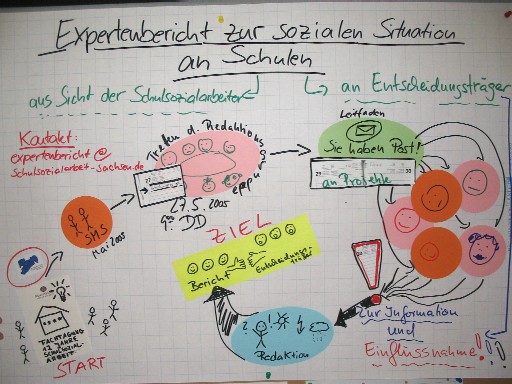 Expertenbericht zur sozialen Situation
an Schulen
aus Sicht der Schulsozialarbeiter
an Entscheidungsträger
Kontakt:
expertenbericht@
schulsozialarbeit-sachsen.de
Treffen d. Redaktionsgruppe
27.5.2005
DD
Leitfaden
Sie haben Post!
an Projekte
SMS
Mai 2005
ZIEL
Bericht
Entscheidungsträger
FACHTAGUNG
12 JAHRE
SCHULSOZIAL-
ARBEIT
START
Redaktion
Zur Information
und
Einflussnahme!